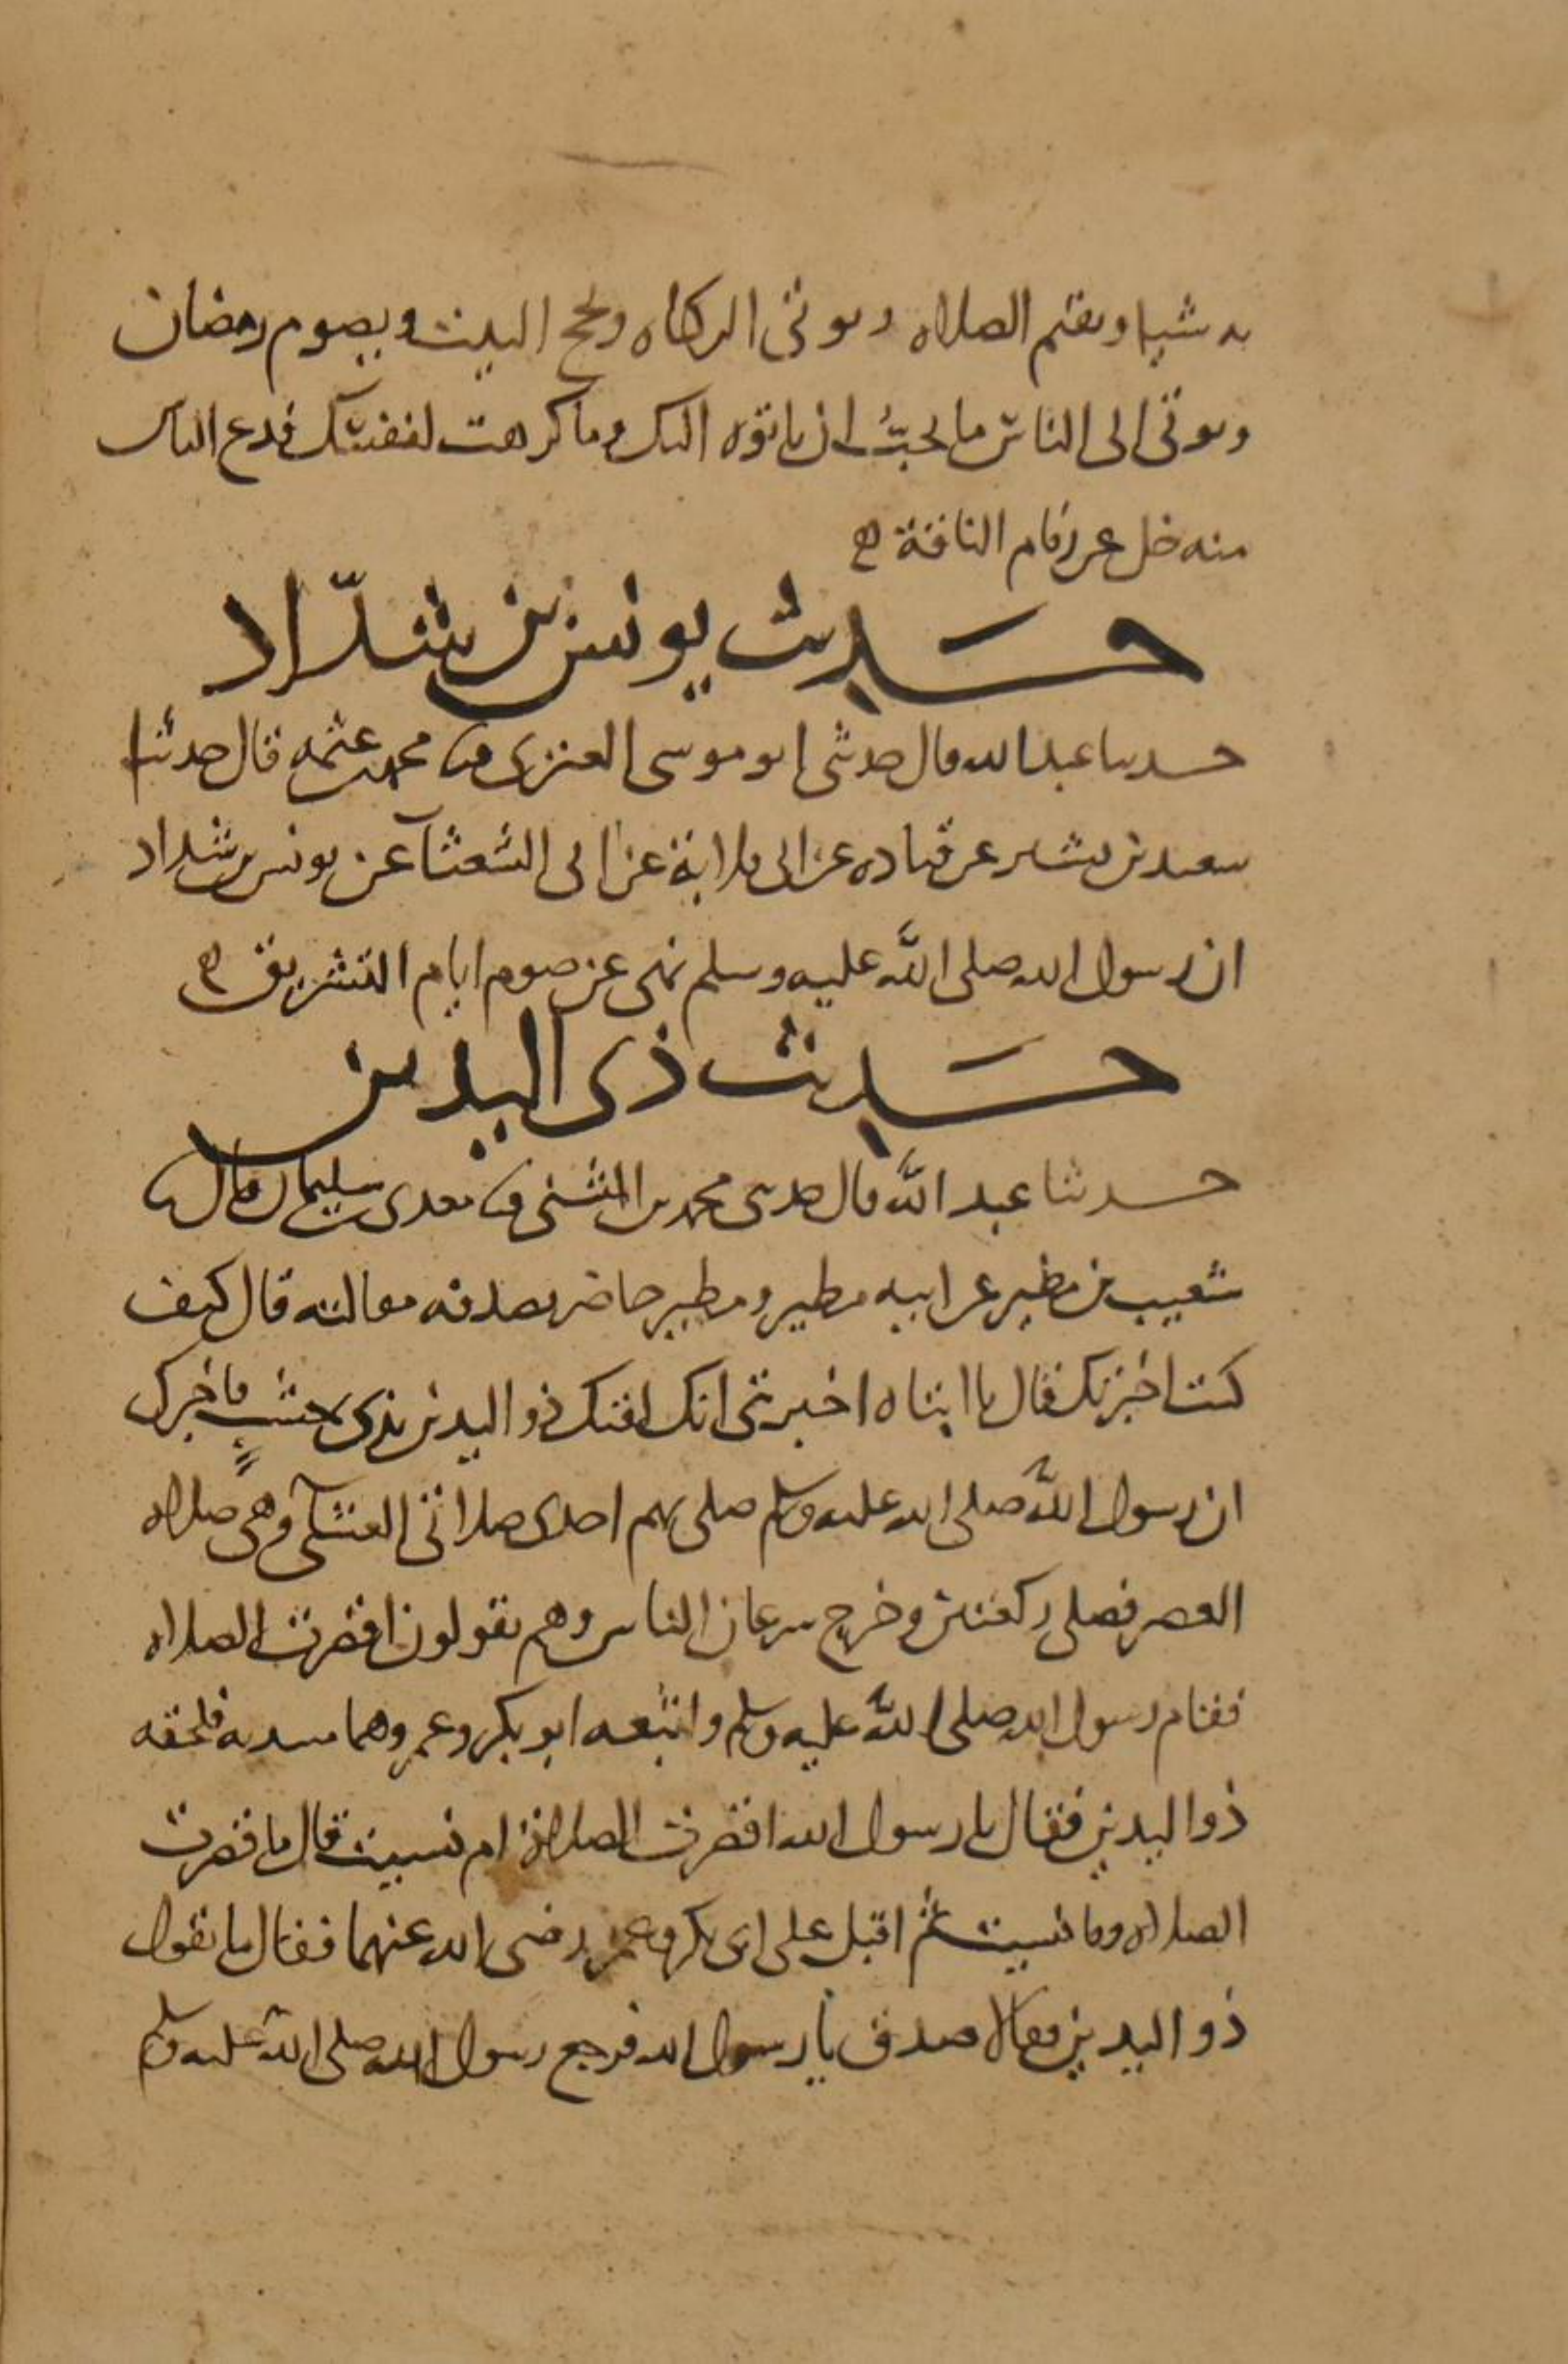 به شيا وتقيم الصلاه وتوتى الزكاه وتحج البيت وتصوم رمضان
وتوتى الى الناس ما تحبُّ ان ياتوه اليك وما كرهت لنفسك فدع الناس
منه خل عن زمام الناقة
حديث يونس بن شدّاد
حدثنا عبد الله قال حدثنى ابو موسى العنزى محمد بن عثمه قال حدثنا
سعيد بن بشير عن قتاده عن ابى قلابة عن ابى الشعثآ عن يونس بن شداد
ان رسول الله صلى الله عليه وسلم نهى عن صوم ايام التشريق
حديث ذى اليدين
حدثنا عبد الله قال حدثنى محمد بن المثنى معدى بن سليمان قال
شعيب بن مطير عن ابيه مطير ومطير حاضر يصدقه مقالته قال كيف
كنت اخبرتك فقال يا ابتاه اخبرتنى انك لقيك ذو اليدين بذى خشبٍ فاخبرك
ان رسول الله صلى الله عليه وسلم صلى بهم احدى صلاتى العشى وهى صلاه
العصر فصلى ركعتين وخرج سرعان الناس وهم يقولون اقصرت الصلاه
فقام رسول الله صلى الله عليه وسلم واتبعه ابو بكر وعمر وهما فلحقه
ذو اليدين فقال يا رسول الله اقصرت الصلاة ام نسيت قال ما قصرت
الصلاه وما نسيت ثم اقبل على ابى بكر وعمر رضى الله عنهما فقال ما يقول
ذو اليدين فقالا صدق يا رسول الله فرجع رسول الله صلى الله عليه وسلم